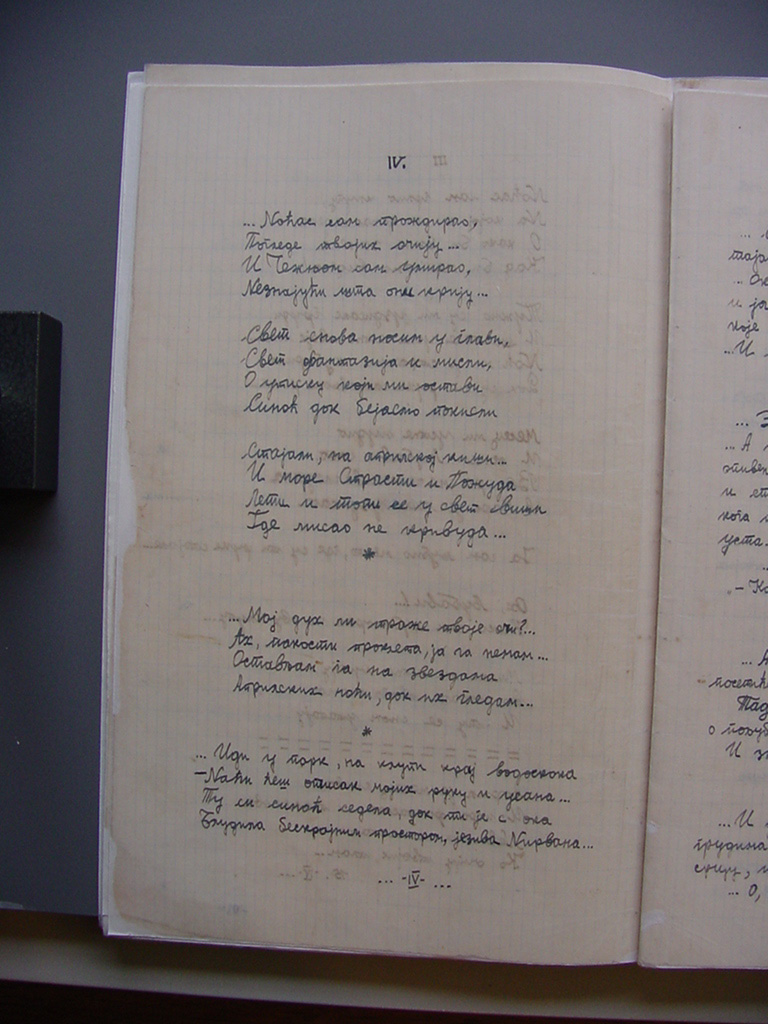 IV.
... Ноћас сам прождирао,
Погледе твојих очију...
И Чежњом сам грцрао,
Незнајући шта они крију...
Свет снова носим у глави,
Свет фантазија и мисли,
О утиску који ми остави
Синоћ док бејасмо покисли
Стајали, на априлској киши...
И море Страсти и Пожуда
Лети и топи се у свет виши
Где мисао не кривуда...
*
...Мој дух ли траже твоје очи?...
Ах, пакости проклета, ја га немам...
Остављам га на звездама
Априлских ноћи, док их гледам...
*
... Иди у парк, на клупи крај водоскока
– Наћи ћеш отисак мојих руку и усана...
Ту си синоћ седела, док ти је с ока
Блудила бескрајним простором, језива Нирвана...
... -IV- ...